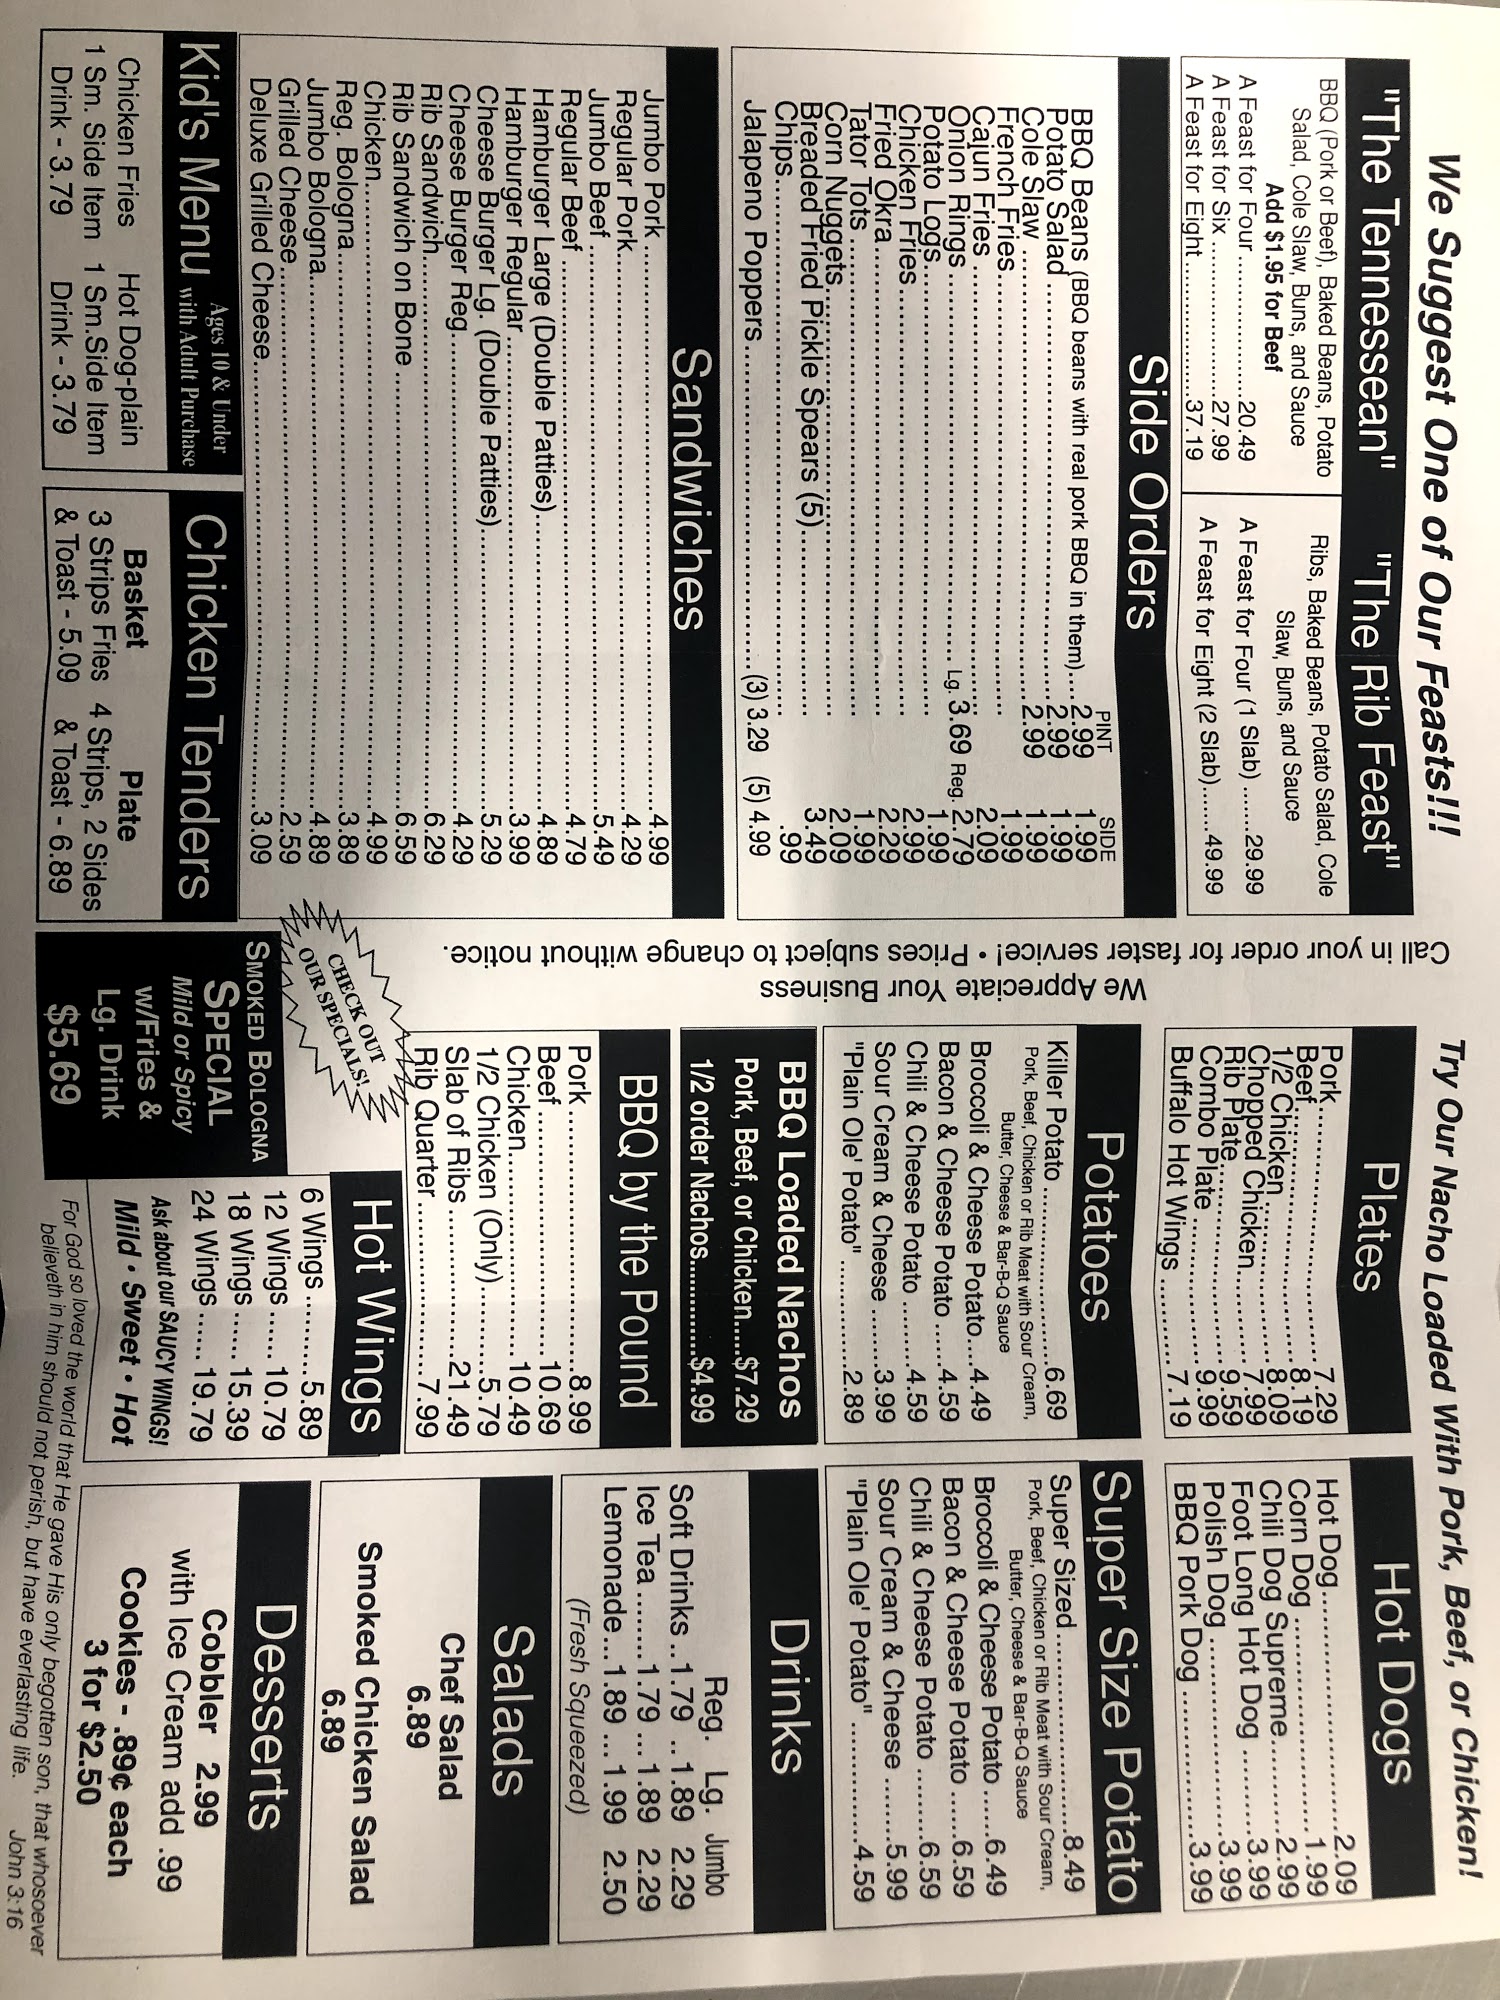 We Suggest One of Our Feasts!!!
"The Tennessean"
BBQ (Pork or Beef), Baked Beans, Potato
Salad, Cole Slaw, Buns, and Sauce
Add $1.95 for Beef
A Feast for Four ....................20.49
A Feast for Six .....................27.99
A Feast for Eight...................37.19
"The Rib Feast"
Ribs, Baked Beans, Potato Salad, Cole
Slaw, Buns, and Sauce
A Feast for Four (1 Slab) .......29.99
A Feast for Eight (2 Slab)......49.99
Side Orders
PINT SIDE
BBQ Beans (BBQ beans with real pork BBQ in them)....2.99 1.99
Potato Salad................2.99 1.99
Cole Slaw ................2.99 1.99
French Fries................1.99
Cajun Fries ................2.09
Onion Rings ................ Lg. 3.69 Reg. 2.79
Potato Logs................1.99
Chicken Fries................2.99
Fried Okra................2.29
Tator Tots ................1.99
Corn Nuggets................2.09
Breaded Fried Pickle Spears (5)................3.49
Chips................ .99
Jalapeno Poppers ................(3) 3.29 (5) 4.99
Sandwiches
Jumbo Pork................4.99
Regular Pork................4.29
Jumbo Beef ................5.49
Regular Beef ................4.79
Hamburger Large (Double Patties)................4.89
Hamburger Regular................3.99
Cheese Burger Lg. (Double Patties)................5.29
Cheese Burger Reg................4.29
Rib Sandwich................6.29
Rib Sandwich on Bone ................6.59
Chicken................4.99
Reg. Bologna................3.89
Jumbo Bologna................4.89
Grilled Cheese................2.59
Deluxe Grilled Cheese................3.09
Kid's Menu Ages 10 & Under
with Adult Purchase
Chicken Fries
1 Sm. Side Item
Drink - 3.79
Hot Dog-plain
1 Sm.Side Item
Drink - 3.79
Chicken Tenders
Basket
3 Strips Fries
& Toast - 5.09
Plate
4 Strips, 2 Sides
& Toast - 6.89
Call in your order for faster service! • Prices subject to change without notice.
We Appreciate Your Business
CHECK OUT
OUR SPECIALS!
SMOKED BOLOGNA
SPECIAL
Mild or Spicy
w/Fries &
Lg. Drink
$5.69
Try Our Nacho Loaded With Pork, Beef, or Chicken!
Plates
Pork................7.29
Beef................8.19
1/2 Chicken................8.09
Chopped Chicken................7.99
Rib Plate................9.59
Combo Plate ................9.99
Buffalo Hot Wings ................7.19
Hot Dogs
Hot Dog................2.09
Corn Dog ................1.99
Chili Dog Supreme................2.99
Foot Long Hot Dog ................3.99
Polish Dog ................3.99
BBQ Pork Dog ................3.99
Potatoes
Killer Potato ................6.69
Pork, Beef, Chicken or Rib Meat with Sour Cream,
Butter, Cheese & Bar-B-Q Sauce
Broccoli & Cheese Potato....4.49
Bacon & Cheese Potato .....4.59
Chili & Cheese Potato ........4.59
Sour Cream & Cheese ........3.99
"Plain Ole' Potato" ............2.89
Super Size Potato
Super Sized................8.49
Pork, Beef, Chicken or Rib Meat with Sour Cream,
Butter, Cheese & Bar-B-Q Sauce
Broccoli & Cheese Potato ......6.49
Bacon & Cheese Potato ......6.59
Chili & Cheese Potato ........6.59
Sour Cream & Cheese ........5.99
"Plain Ole' Potato" ..............4.59
BBQ Loaded Nachos
Pork, Beef, or Chicken....$7.29
1/2 order Nachos............$4.99
Drinks
Reg. Lg. Jumbo
Soft Drinks ..1.79 .. 1.89 2.29
Ice Tea ......1.79 ... 1.89 2.29
Lemonade...1.89 ... 1.99 2.50
(Fresh Squeezed)
BBQ by the Pound
Pork................8.99
Beef................10.69
Chicken................10.49
1/2 Chicken (Only)......5.79
Slab of Ribs ............21.49
Rib Quarter................7.99
Salads
Chef Salad
6.89
Smoked Chicken Salad
6.89
Hot Wings
6 Wings .........5.89
12 Wings ...... 10.79
18 Wings ...... 15.39
24 Wings ...... 19.79
Ask about our SAUCY WINGS!
Mild • Sweet • Hot
Desserts
Cobbler 2.99
with Ice Cream add .99
Cookies - .89¢ each
3 for $2.50
For God so loved the world that He gave His only begotten son, that whosoever
believeth in him should not perish, but have everlasting life. John 3:16